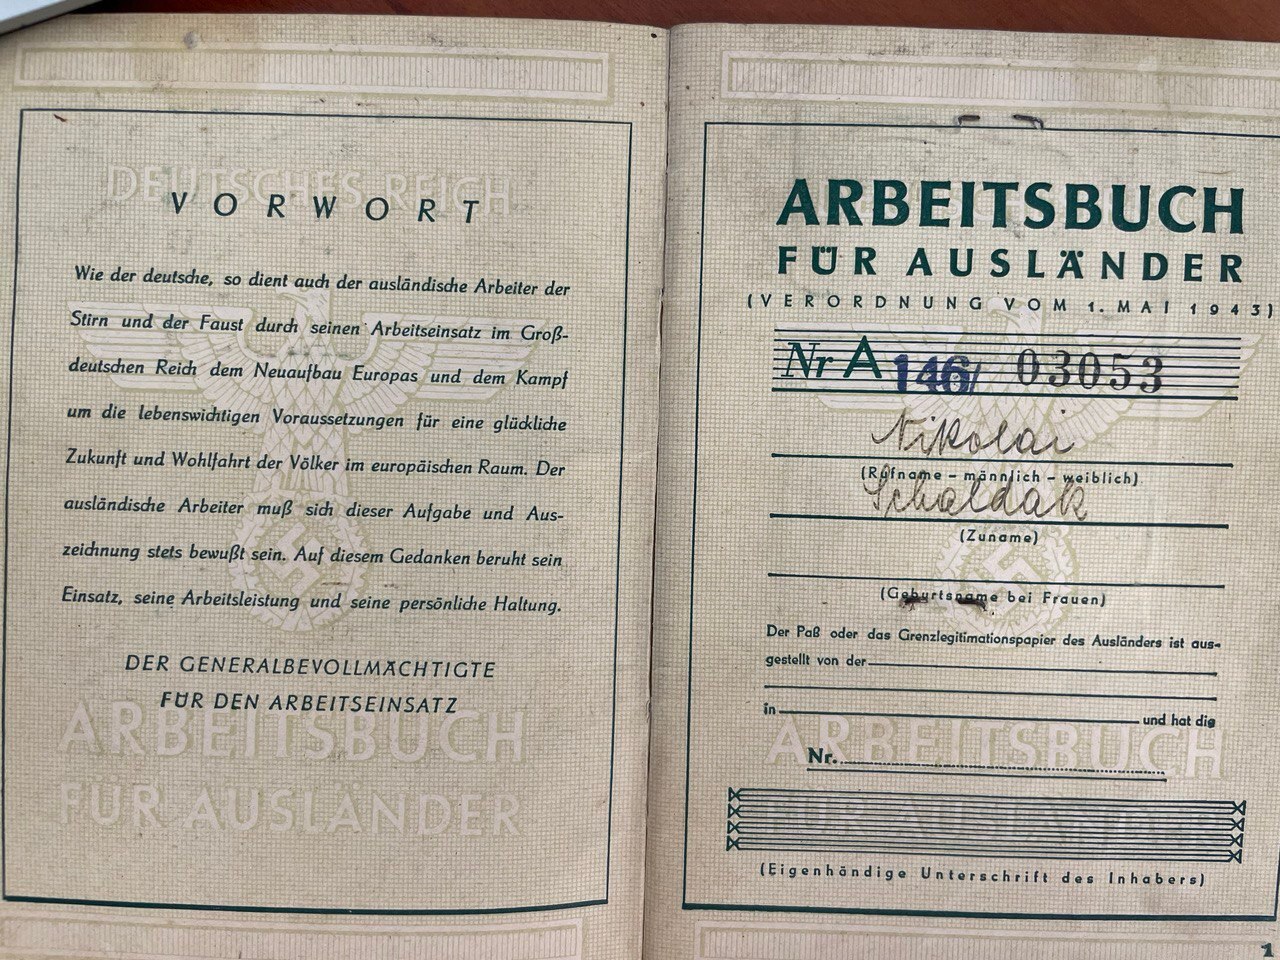 DEUTSCHES REICH
VORWORT
Wie der deutsche, so dient auch der ausländische Arbeiter der
Stirn und der Faust durch seinen Arbeitseinsatz im Groß-
deutschen Reich dem Neuaufbau Europas und dem Kampf
um die lebenswichtigen Voraussetzungen für eine glückliche
Zukunft und Wohlfahrt der Völker im europäischen Raum. Der
ausländische Arbeiter muß sich dieser Aufgabe und Aus-
zeichnung stets bewußt sein. Auf diesem Gedanken beruht sein
Einsatz, seine Arbeitsleistung und seine persönliche Haltung.
DER GENERALBEVOLLMÄCHTIGTE
FÜR DEN ARBEITSEINSATZ
ARBEITSBUCH
FÜR AUSLÄNDER
ARBEITSBUCH
FÜR AUSLÄNDER
(VERORDNUNG VOM 1. MAI 1943)
Nr A 146/ 03053
Nikolai
(Rufname – männlich – weiblich)
Schaldak
(Zuname)
(Geburtsname bei Frauen)
Der Paß oder das Grenzlegitimationspapier des Ausländers ist aus-
gestellt von der
in und hat die
ARBEITSBUCH
Nr.
FÜR AUSLÄNDER
(Eigenhändige Unterschrift des Inhabers)
1